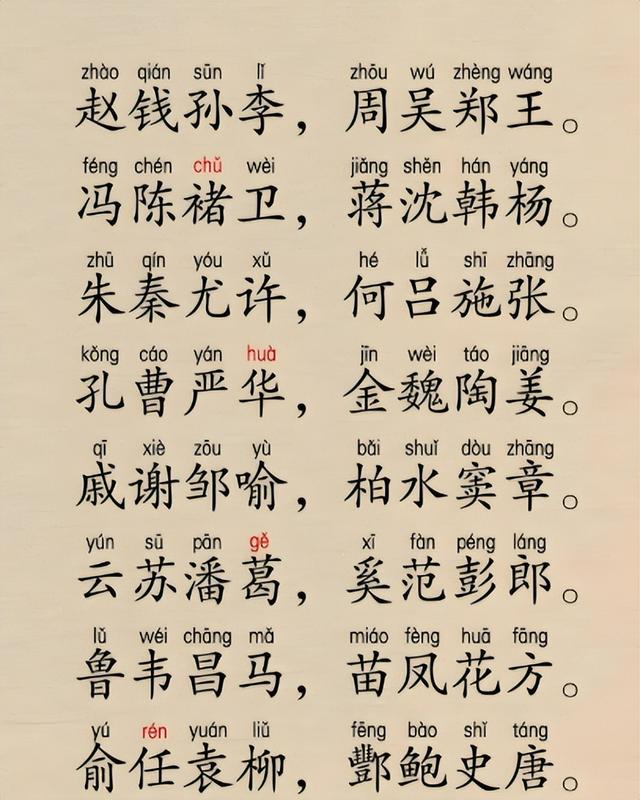 zhào qián sūn lǐ zhōu wú zhèng wáng
赵钱孙李，周吴郑王。
féng chén chǔ wèi jiǎng shěn hán yáng
冯陈褚卫，蒋沈韩杨。
zhū qín yóu xǔ hé lǚ shī zhāng
朱秦尤许，何吕施张。
kǒng cáo yán huà jīn wèi táo jiāng
孔曹严华，金魏陶姜。
qī xiè zōu yù bǎi shuǐ dòu zhāng
戚谢邹喻，柏水窦章。
yún sū pān gě xī fàn péng láng
云苏潘葛，奚范彭郎。
lǔ wéi chāng mǎ miáo fèng huā fāng
鲁韦昌马，苗凤花方。
yú rén yuán liǔ fēng bào shǐ táng
俞任袁柳，酆鲍史唐。